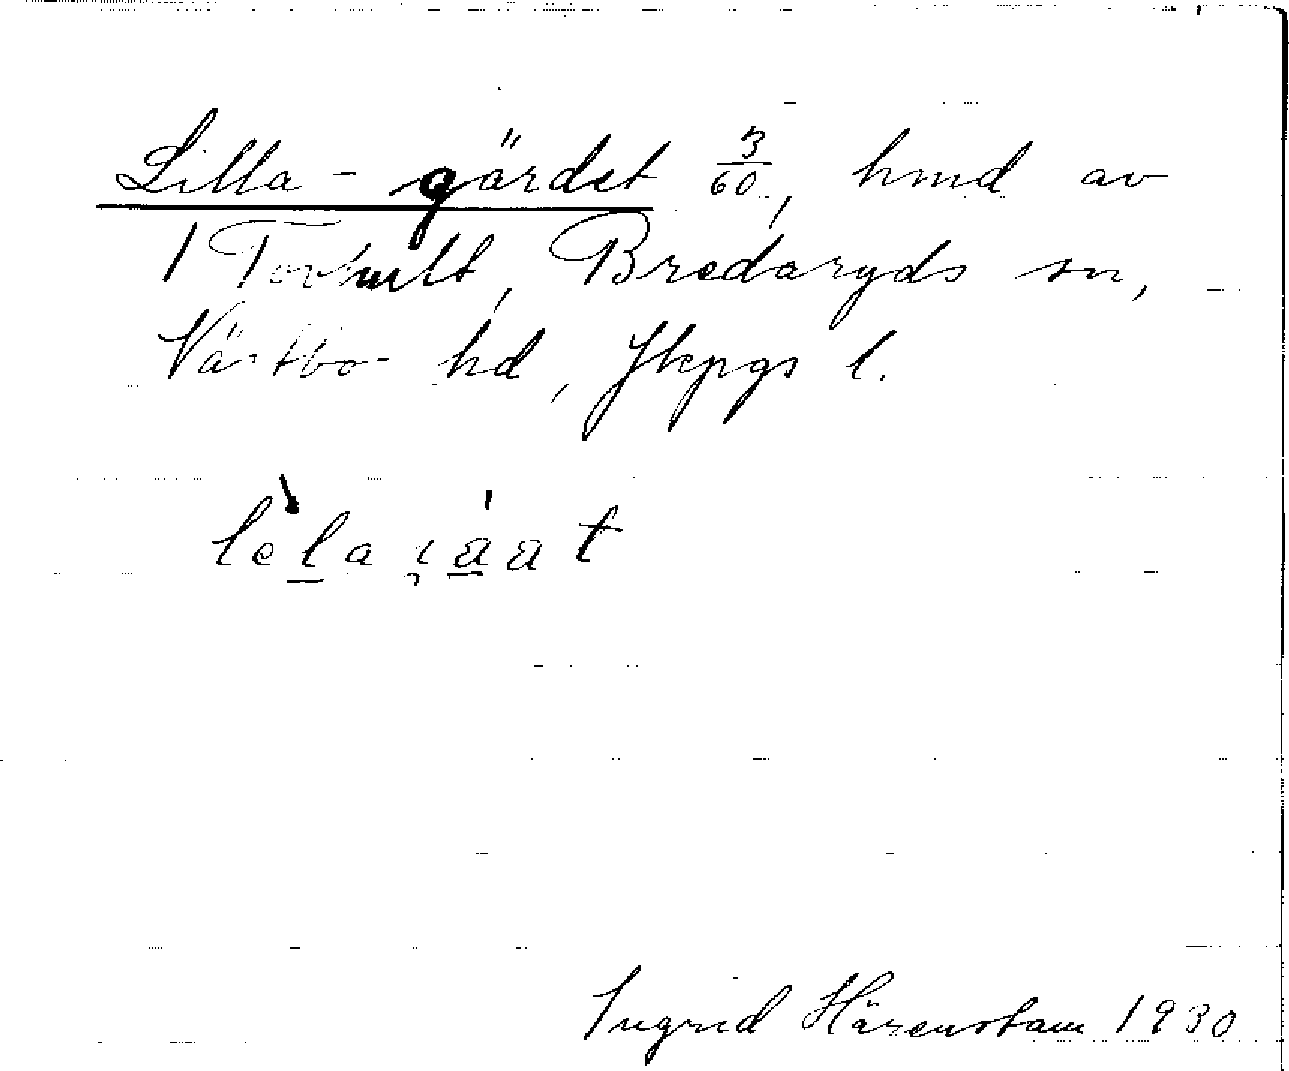 Lilla-gärdet 3/60, hmd av
1 Torhult, Bredaryds sn,
Västbo hd, Jkpgs l.
Ingrid Härenstam 1930